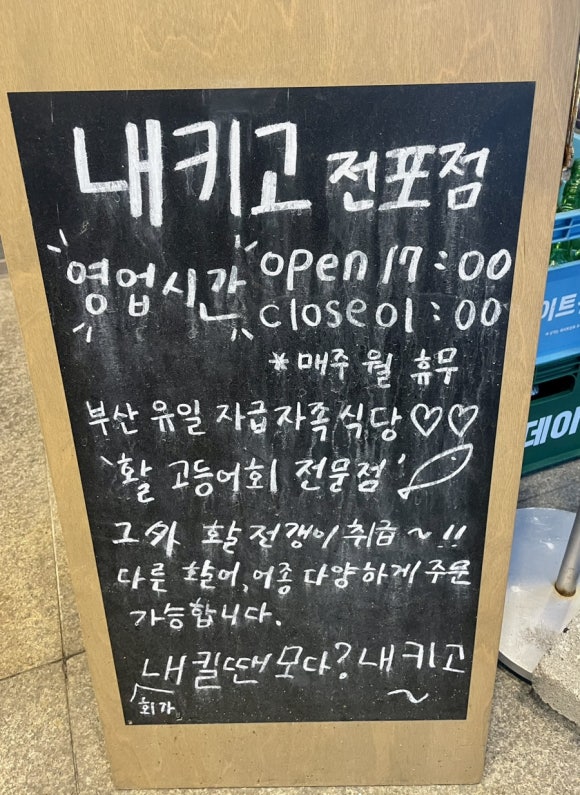 내키고 전포점
영업시간 open 17:00
close 01:00
*매주 월 휴무
부산 유일 자급자족 식당♡♡
'활 고등어회 전문점'
그 外 활 전갱이 취급~!!
다른 활어, 어종 다양하게 주문
가능합니다.
내킬땐 모다? 내키고
회가
~
이트
데이